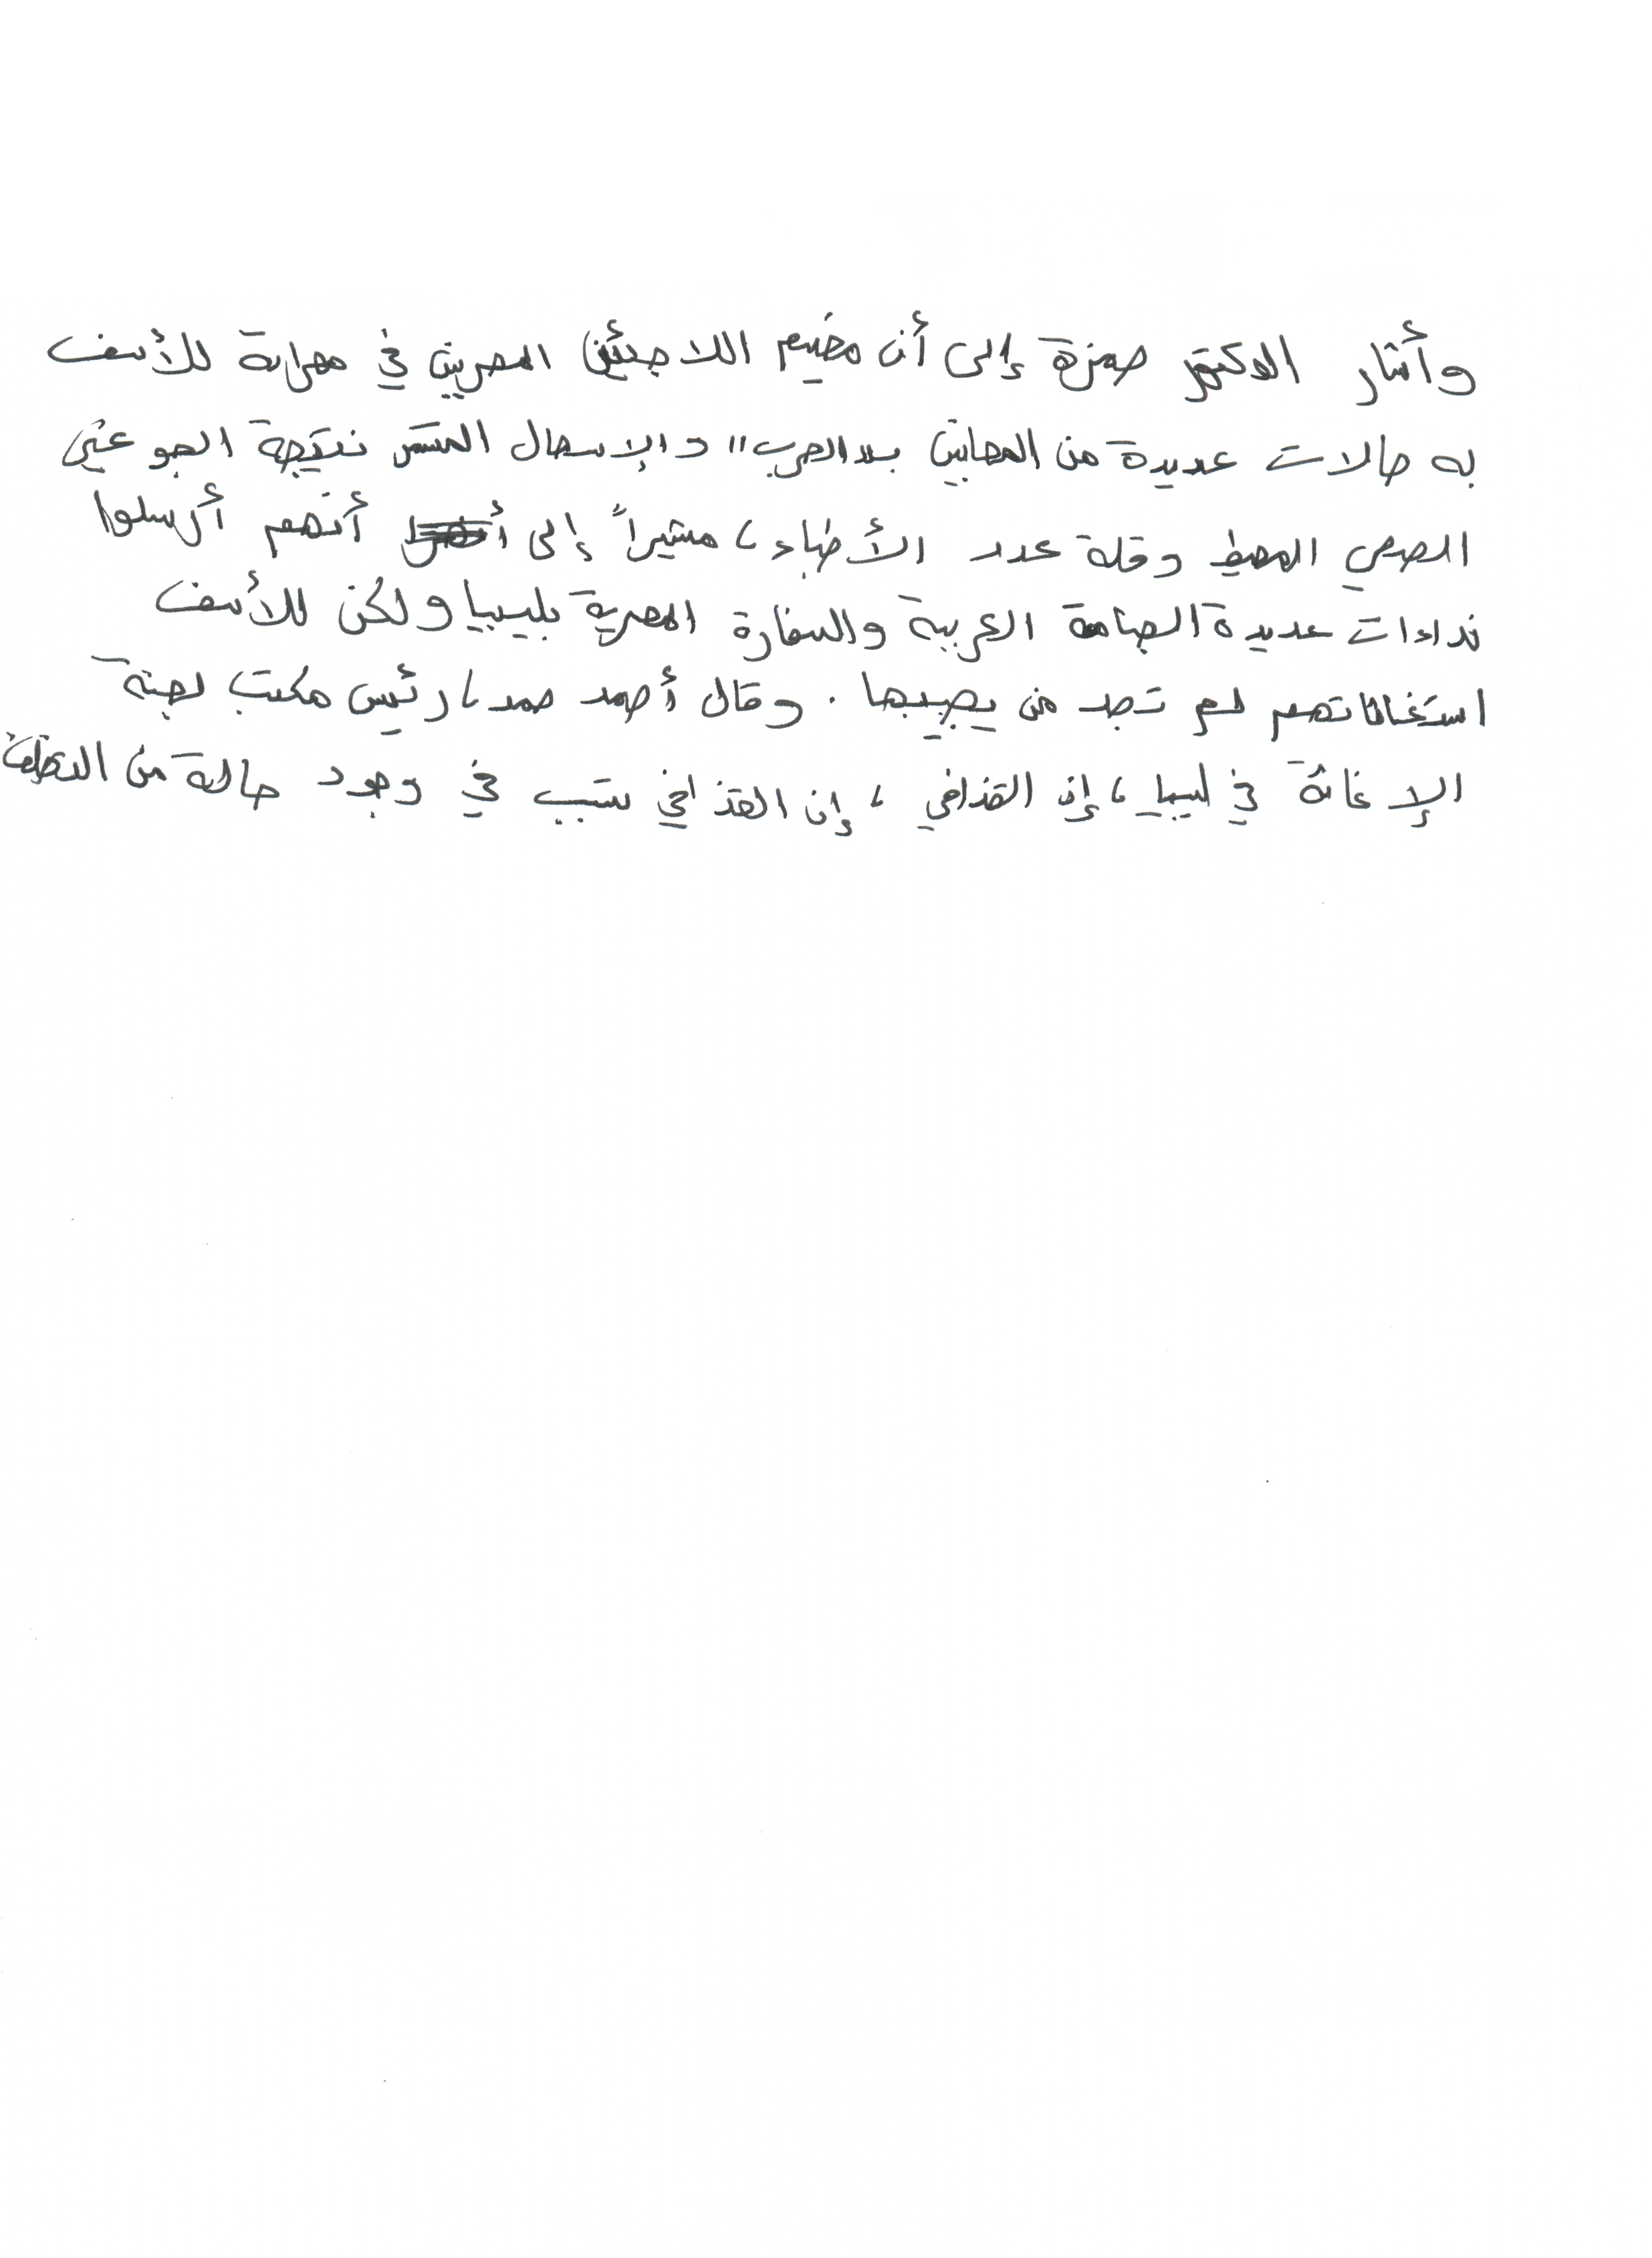 وأشار الدكتور حمزة إلى أن مخيم اللاجئين المصريين في مصراتة للأسف
به حالات عديدة من المصابين بـ"الجرب" والإسهال المستمر نتيجة الجو غير
الصحي المحيط وقلة عدد الأطباء، مشيراً إلى أنهم أرسلوا
نداءات عديدة الجامعة العربية والسفارة المصرية بليبيا ولكن للأسف
استغاثاتهم لم تجد من يجيبها. وقال أحمد حمد، رئيس مكتب لجنة
الإغاثة في ليبيا، إن القذافي، إن القذافي سبب في وجود حالة من